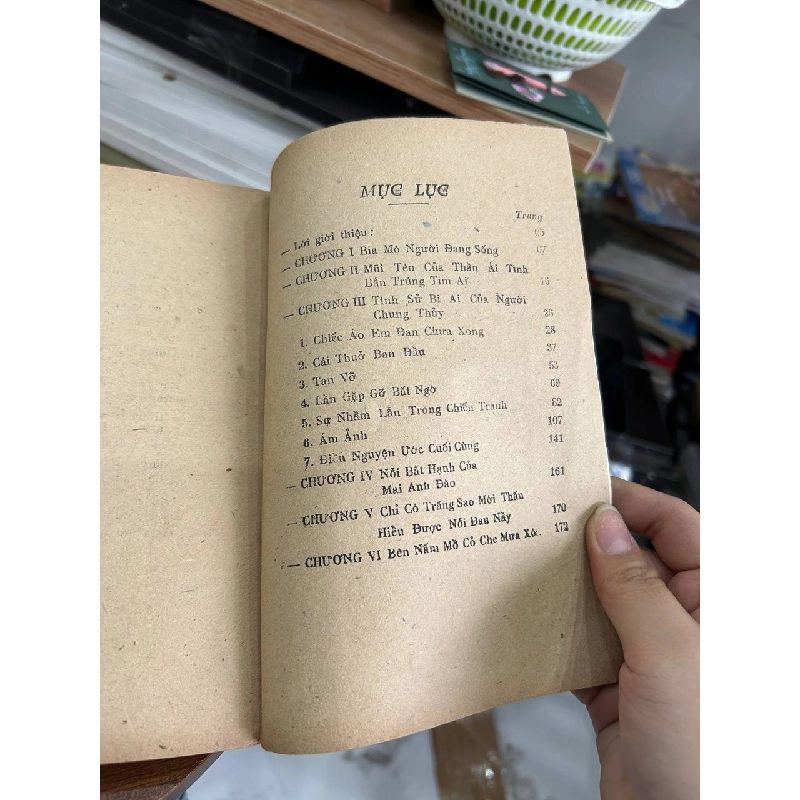 MỤC LỤC
Trang
— Lời giới thiệu : 05
— CHƯƠNG I Bia Mộ Người Đang Sống 07
— CHƯƠNG II Mũi Tên Của Thần Ái Tình
Bắn Trúng Tim Ai 15
— CHƯƠNG III Tình Sử Bi Ai Của Người
Chung Thủy 28
1. Chiếc Áo Em Đan Chưa Xong 28
2. Cái Thuở Ban Đầu 37
3. Tan Vỡ 53
4. Lần Gặp Gỡ Bất Ngờ 69
5. Sự Nhầm Lẫn Trong Chiến Tranh 82
6. Ám Ảnh 107
7. Điều Nguyện Ước Cuối Cùng 141
— CHƯƠNG IV Nỗi Bất Hạnh Của
Mai Anh Đào 161
— CHƯƠNG V Chỉ Có Trăng Sao Mới Thấu
Hiểu Được Nỗi Đau Nầy 170
— CHƯƠNG VI Bên Nấm Mồ Cỏ Che Mưa Xó.. 172